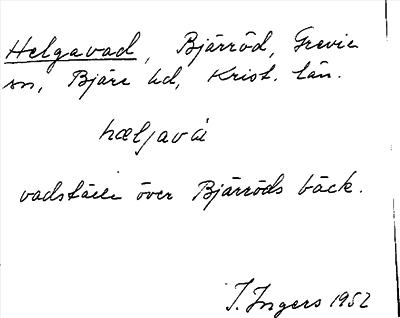 Helgavad, Bjärröd, Grevie
sn, Bjäre hd, Krist. län.
hæljavā
vadställe över Bjärröds bäck.
I. Ingers 1952